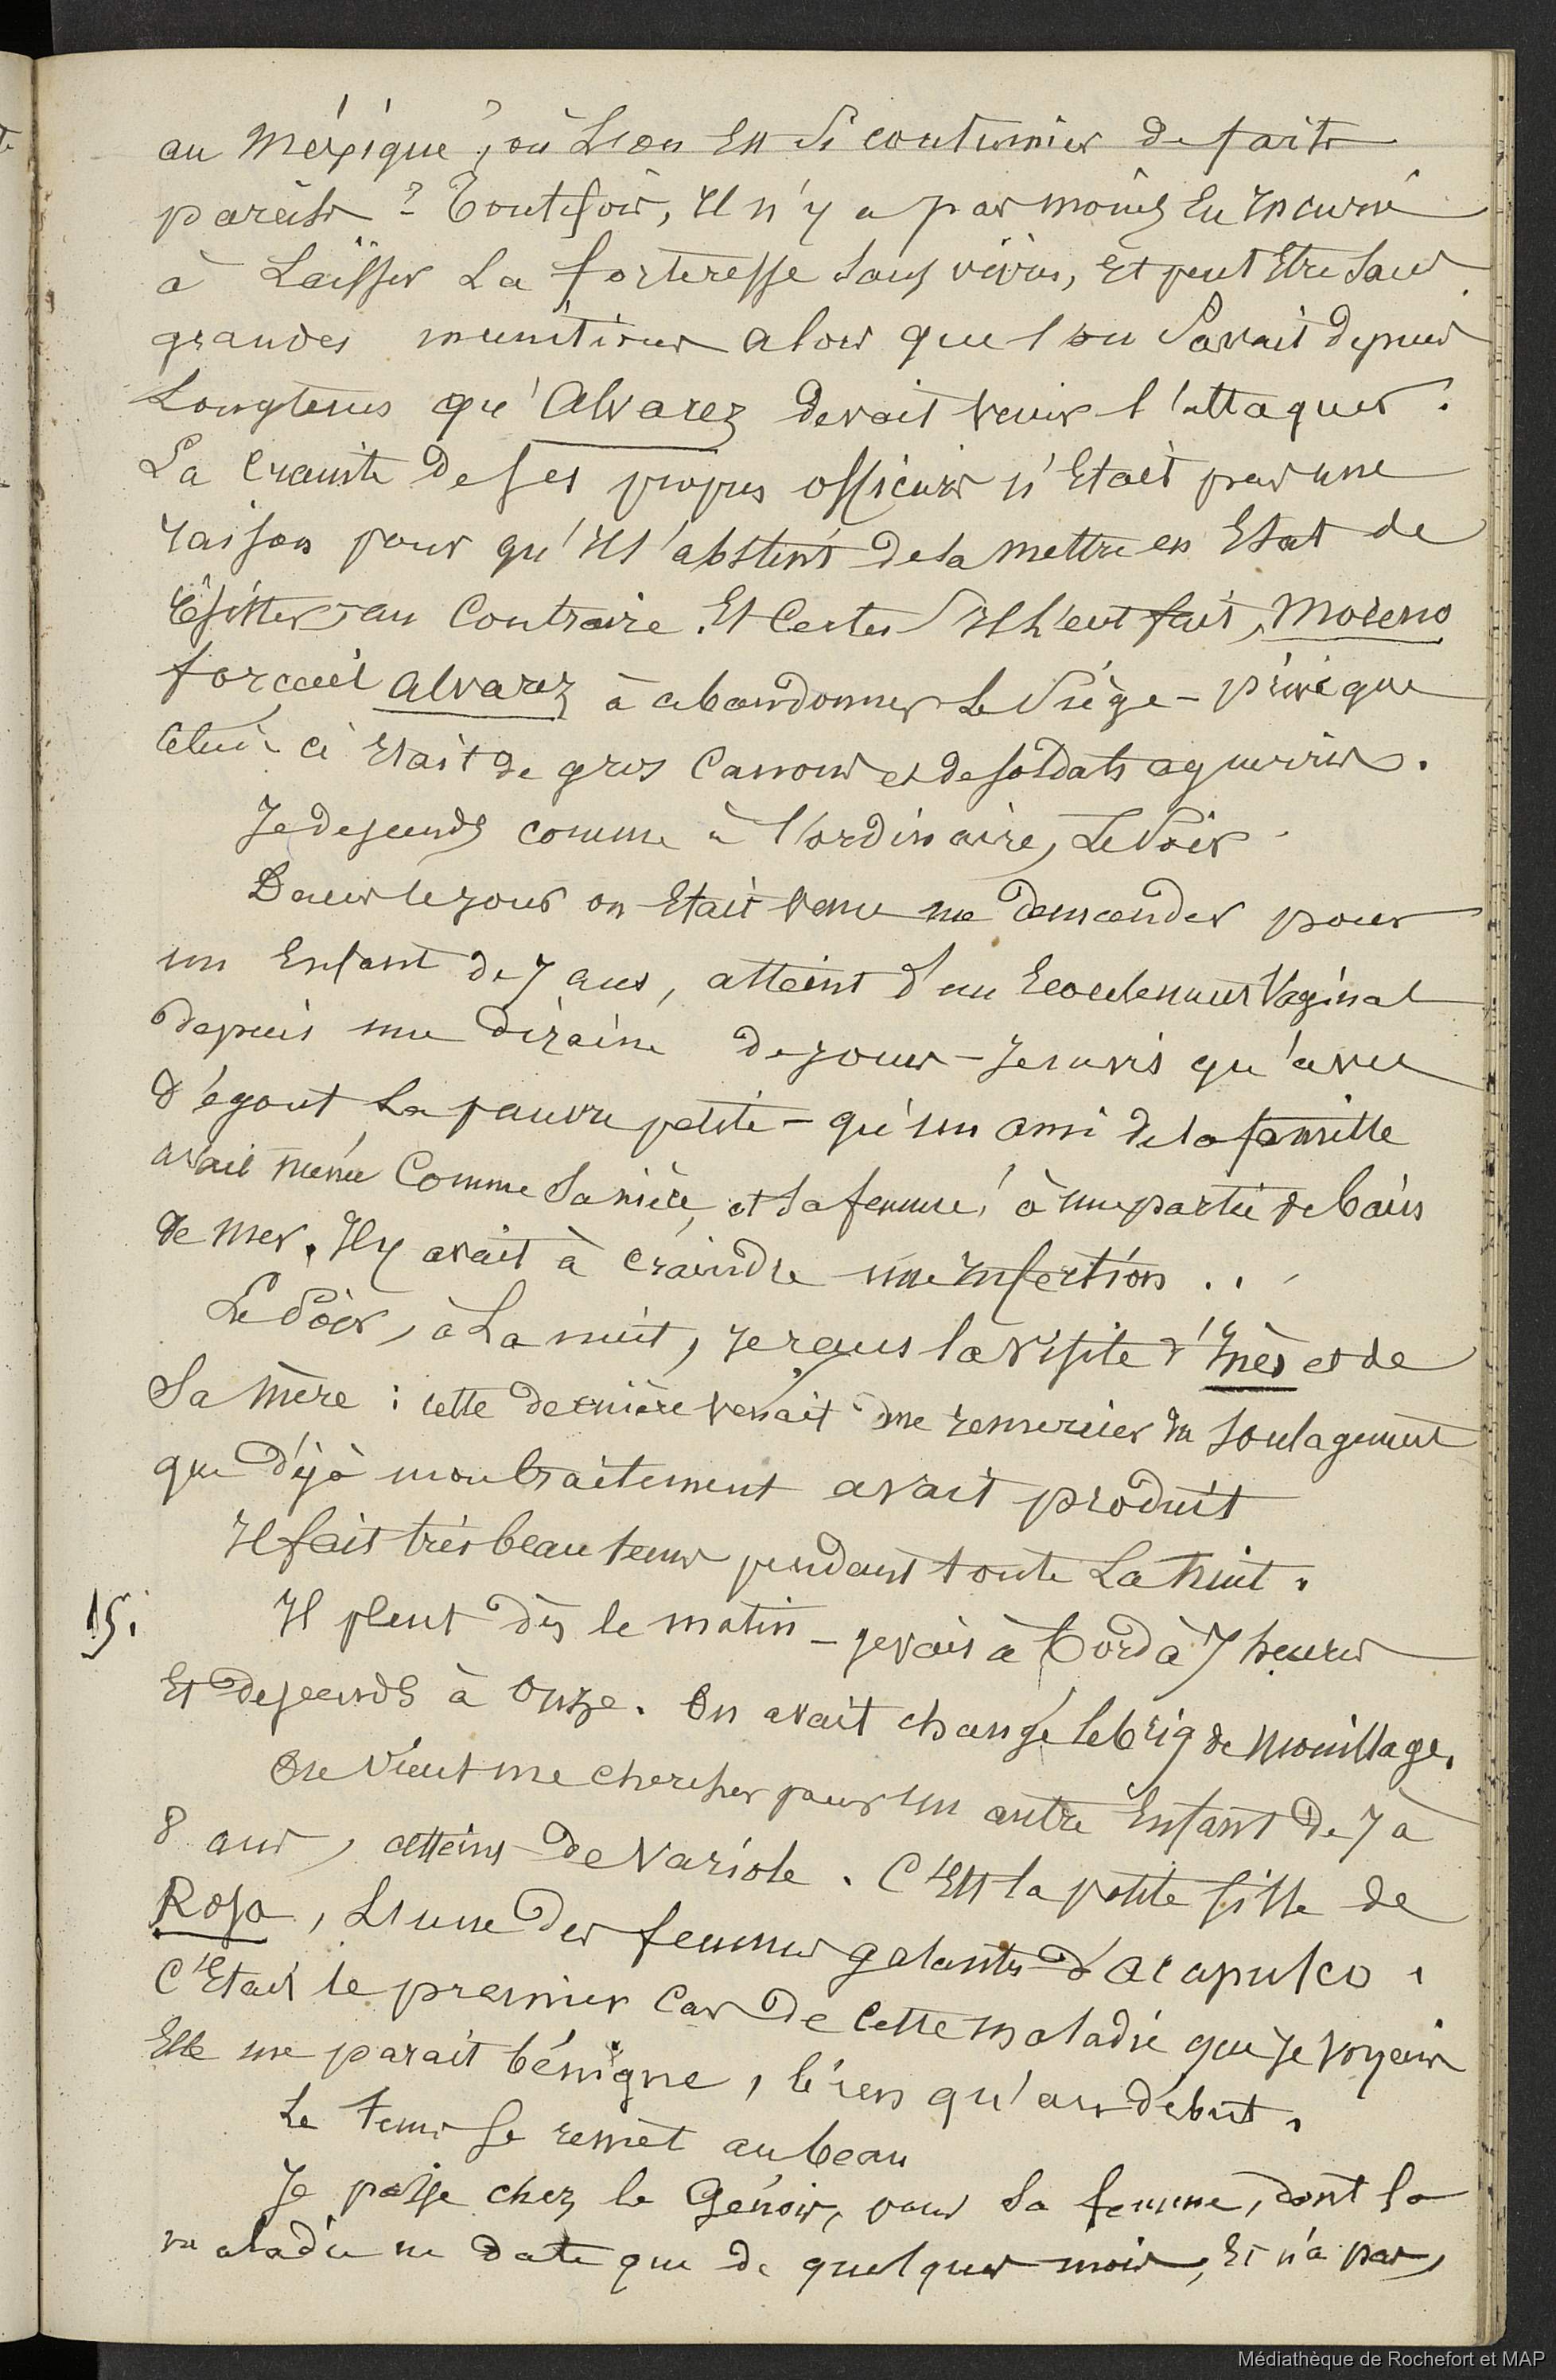 au Méxique, où L'on Est Si coutumier de faits
pareils ? Toutefois, Il n'y a pas moins Eu Incurie
à Laisser La forteresse sans vivres, Et peut Etre sans
grandes munitions alors que l'on Savait depuis
Longtems qu'Alvarez devait venir l'attaquer.
La Crainte de ses propres officiers n'Etait pas une
raison pour qu'Il s'abstint de la mettre en Etat de
résister, au Contraire. Et Certes S'Il l'eut fait, Moreno
forçait Alvarez à abandonner Le Siège - privé que
Celui-ci Etait de gros Canons et de soldats aguerris.
Je descends comme à l'ordinaire, Le Soir.
Dans le jour on Etait venu me demander pour
un Enfant de 7 ans, atteint d'un Ecoulement Vaginal
depuis une dizaine de jours - Je ne vis qu'avec
d'égout La pauvre petite - qu'un ami de la famille
avait menée Comme Sa nièce, et Sa femme, à une partie de bains
de mer. Il y avait à craindre une Infection ..
Le Soir, à La nuit, je reçus la visite d'Inès et de
Sa Mère : cette dernière venait me remercier du Soulagement
que déjà mon traitement avait produit
Il fait très beau tems pendant toute La Nuit.
15. Il pleut dès le matin - je vais à bord à 7 heures
Et descends à Onze. On avait changé le brig de Mouillage.
On Vient me chercher pour un autre Enfant de 7 à
8 ans, atteint de Variole. C'Est la petite fille de
Rosa, L'une des femmes galantes d'Acapulco.
C'Etait le premier Cas de Cette Maladie que Je voyais
Elle me parait bénigne, bien qu'au début.
Le tems se remet au beau
Je passe chez le Génois, pour Sa femme, dont la
maladie ne date que de quelques mois, Et n'a pas,
Médiathèque de Rochefort et MAP